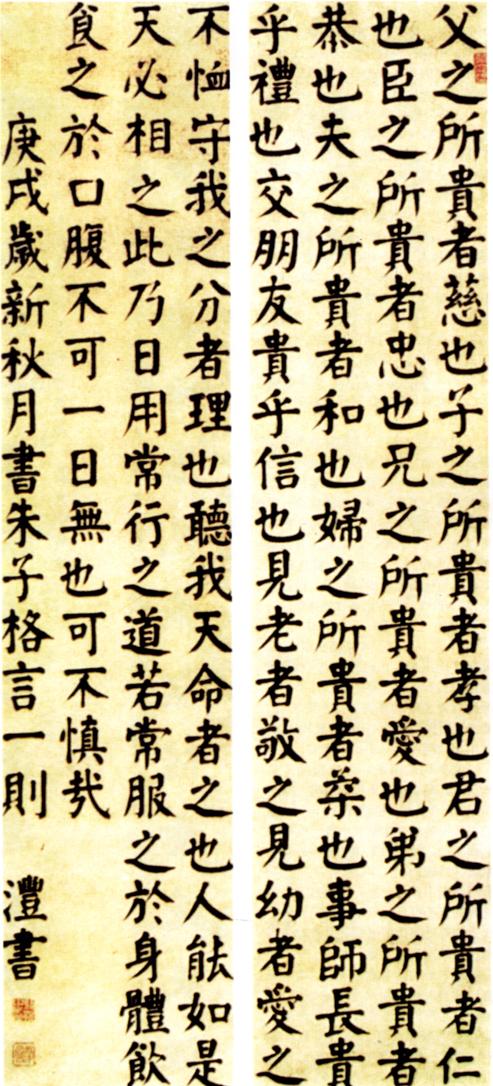 父之所貴者慈也子之所貴者孝也君之所貴者仁
也臣之所貴者忠也兄之所貴者愛也弟之所貴者
恭也夫之所貴者和也婦之所貴者柔也事師長貴
乎禮也交朋友貴乎信也見老者敬之見幼者愛之
不恤守我之分者理也聽我天命者之也人能如是
天必相之此乃日用常行之道若常服之於身體飲
食之於口腹不可一日無也可不慎哉
庚戌歲新秋月書朱子格言一則 灃書